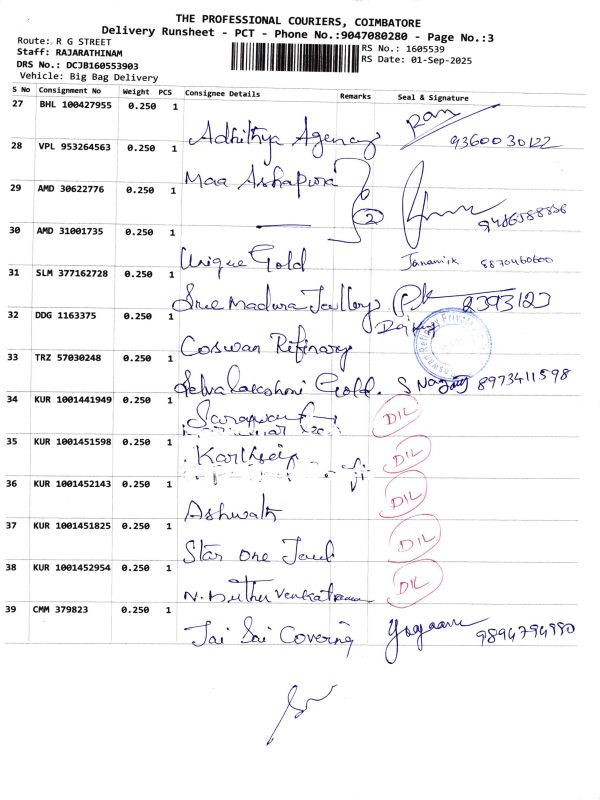 THE PROFESSIONAL COURIERS, COIMBATORE
Delivery Runsheet - PCT - Phone No.:9047080280 - Page No.:3
Route: R G STREET
Staff: RAJARATHINAM
RS No.: 1605539
DRS No.: DCJB160553903
RS Date: 01-Sep-2025
Vehicle: Big Bag Delivery
S No Consignment No Weight PCS Consignee Details Remarks Seal & Signature
27 BHL 100427955 0.250 1 Adhithya Agency 9360030122
28 VPL 953264563 0.250 1 Maa Ashapura
29 AMD 30622776 0.250 1 2
30 AMD 31001735 0.250 1 Unique Gold 8870460600
31 SLM 377162728 0.250 1 Sree Madura 2393123
32 DDG 1163375 0.250 1 Coswan Refinary
33 TRZ 57030248 0.250 1 Selvalakshmi Gold. 8973411598
34 KUR 1001441949 0.250 1 DIL
35 KUR 1001451598 0.250 1 DIL
36 KUR 1001452143 0.250 1 Ashwath DIL
37 KUR 1001451825 0.250 1 Star One DIL
38 KUR 1001452954 0.250 1 DIL
39 CMM 379823 0.250 1 Jai Sai Covering 9894794990